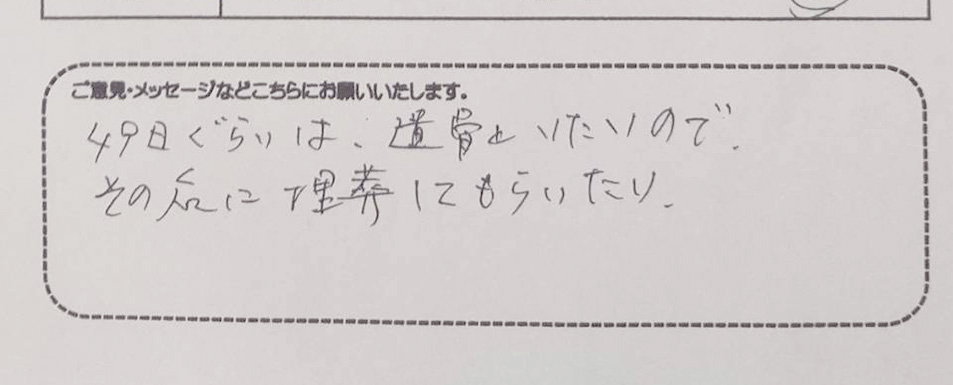 ご意見・メッセージなどこちらにお願いいたします。
49日ぐらいは、遺骨といたいので、
その后に埋葬してもらいたい。